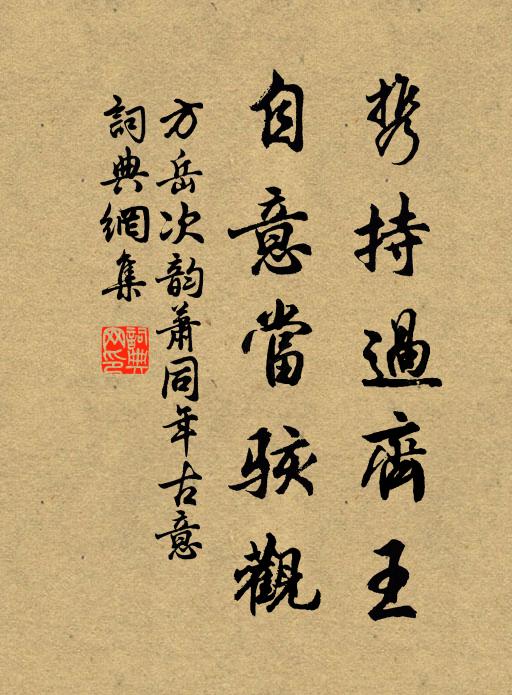 携持過齊王
自意當駭觀
方岳次韵萧同年古意
詞典網集
詞典网印